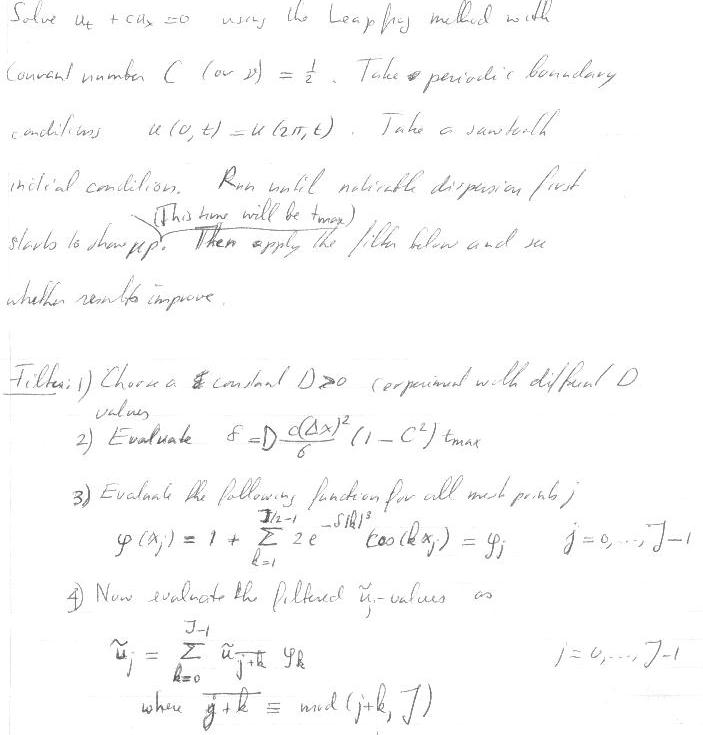 Solve u_t + cu_x = 0 using the Leapfrog method with
Courant number C (or ν) = 1/2. Take periodic boundary
conditions u(0,t) = u(2π,t). Take a sawtooth
initial condition. Run until noticeable dispersion first
(This time will be t_max)
starts to show up. Then apply the filter below and see
whether results improve.
Filter: 1) Choose a constant D>0 (experiment with different D
values
2) Evaluate δ = D c(Δx)²/6 (1 - C²) t_max
3) Evaluate the following function for all mesh points j
φ(x_j) = 1 + Σ_{k=1}^{J/2-1} 2e^{-δ|k|³} cos(kx_j) = φ_j j = 0,...,J-1
4) Now evaluate the filtered ũ_j-values as
ũ_j = Σ_{k=0}^{J-1} ũ_{\overline{j+k}} φ_k j = 0,...,J-1
where \overline{j+k} ≡ mod(j+k, J)